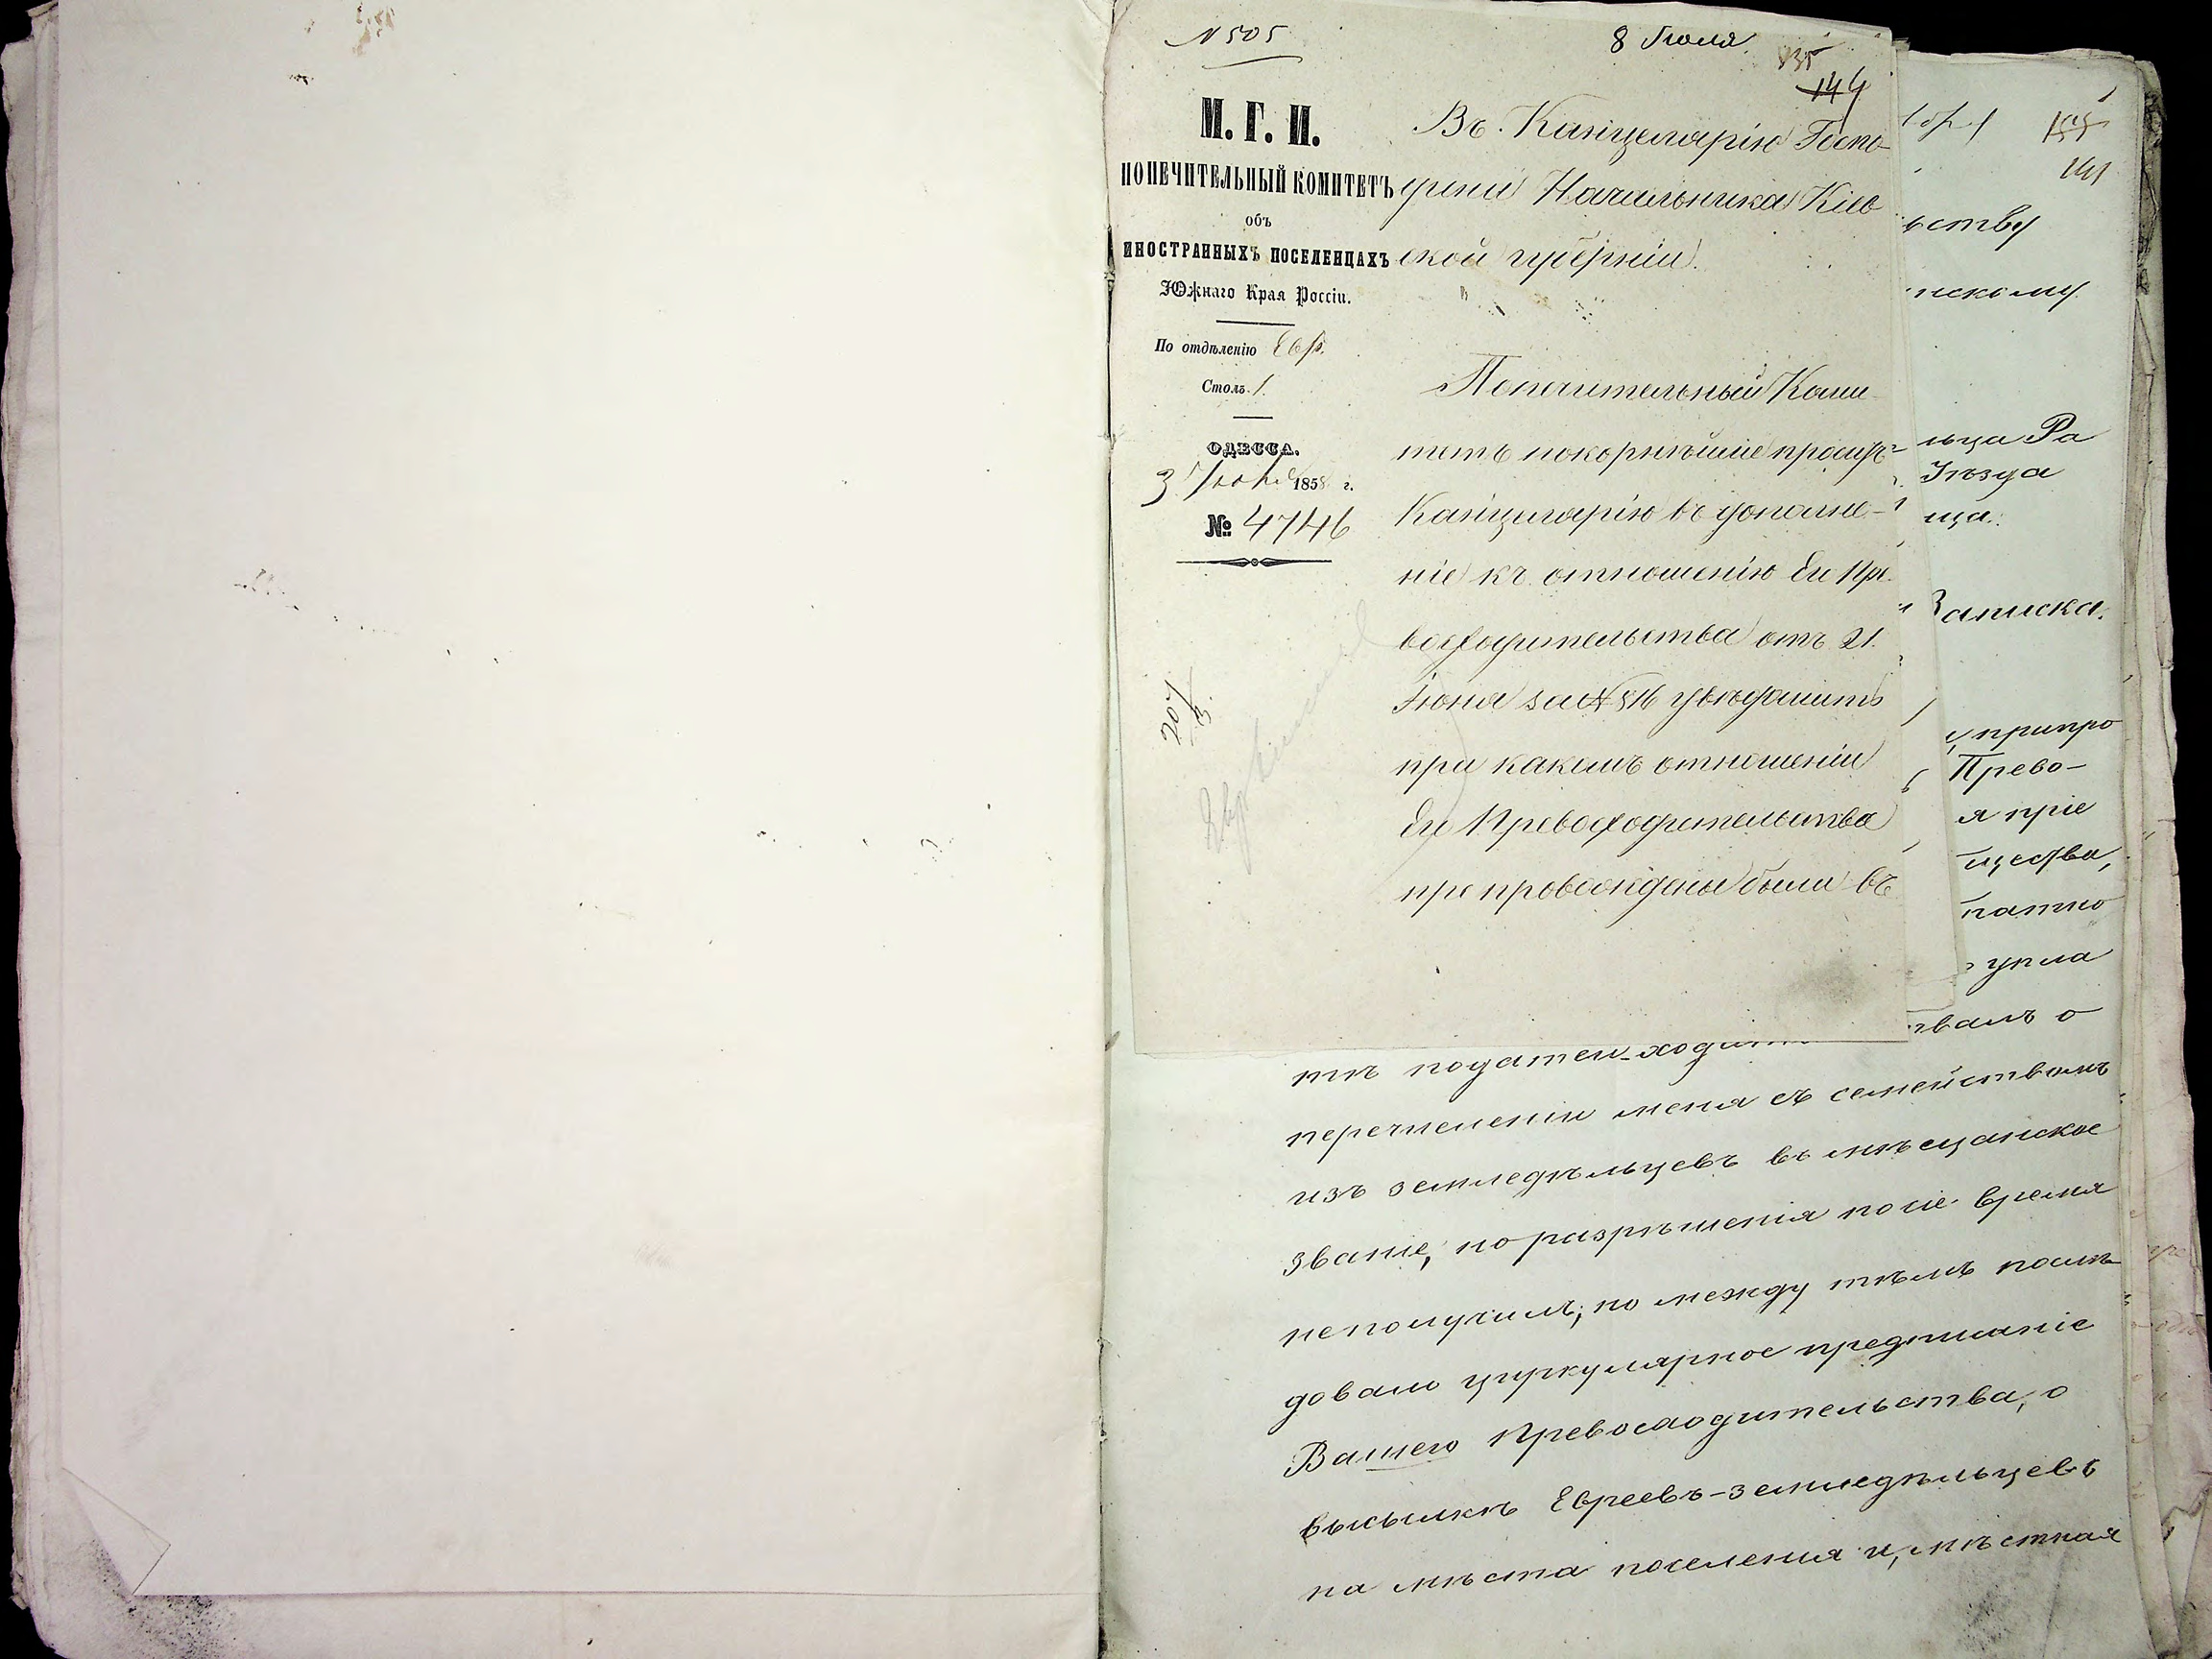 N 505
8 Июля
135
144
М. Г. И.
ПОПЕЧИТЕЛЬНЫЙ КОМИТЕТЪ
объ
ИНОСТРАННЫХЪ ПОСЕЛЕНЦАХЪ
Южнаго Края Россіи.
По отдѣленію Евр.
Столъ 1.
ОДЕССА.
3 Июля 1858 г.
№ 4746
Въ Канцелярію Госпо-
дина Начальника Кіев
ской губерніи.
Попечительный Коми-
тетъ покорнѣйше проситъ
Канцелярію въ дополне-
ніе къ отношенію Его Пре
восходительства отъ 21
Іюня за № 516 увѣдомить
при какомъ отношеніи
Его Превосходительства
препровождены были въ
141
ьству
нскому
льца Ра
Уѣзда
ица.
Записка.
припро
Прево-
я пріе
щества,
патно
упла
твамъ о
тѣ податей ходат
перечисленіи меня съ семействомъ
изъ земледѣльцевъ въ мѣщанское
званіе, но разрѣшенія посіе время
неполучилъ; но между тѣмъ послѣ
довало циркулярное предписаніе
Вашего Превосходительства, о
высылкѣ Евреевъ-земледѣльцевъ
на мѣста поселенія и, мѣстная